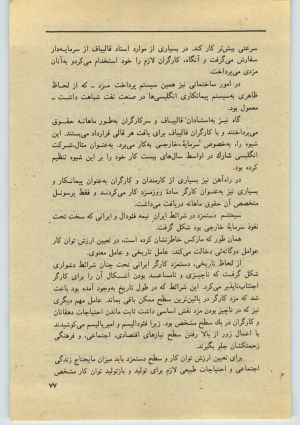 سرعتی بیش‌تر کار کند. در بسیاری از موارد استاد قالیباف از سرمایه‌دار
سفارش می‌گرفت و آنگاه، کارگران لازم را خود استخدام می‌کرد و به آنان
مزدی می‌پرداخت.
در امور ساختمانی نیز همین سیستم پرداخت مزد ــ که از لحاظ
ظاهری به سیستم پیمانکاری انگلیسی‌ها در صنعت نفت شباهت داشت ــ
معمول بود.
گاه نیز به استادان قالیباف و سرکارگران به‌طور ماهانه حقوق
می‌پرداختند و با کارگران قالیباف برای بافت هر قالی قرارداد می‌بستند. این
شیوه را، بخصوص سرمایهٔ خارجی به‌کار می‌برد. به‌عنوان مثال، شرکت
انگلیسی شارک در اواسط سال‌های بیست کار خود را بر این شیوه تنظیم
کرده بود.
در راه‌آهن نیز بسیاری از کارمندان و کارگران به‌عنوان پیمانکار و
بسیاری نیز به‌عنوان کارگر سادهٔ روزمزد کار می‌کردند و فقط پرسونل
متخصص آن حقوق ماهانه دریافت می‌داشت.
سیستم دستمزد در شرائط ایران نیمه فئودال و ایرانی که سخت تحت
نفوذ سرمایهٔ خارجی بود شکل گرفت.
همان طور که مارکس خاطرنشان کرده است، در تعیین ارزش توان کار
عوامل دوگانه‌ئی دخالت می‌کند: عامل تاریخی و عامل معنوی.
از لحاظ تاریخی، دستمزد کارگر ایرانی تحت چنان شرائط دشواری
شکل گرفت که ناچیزی و نامساعد بودن اشکال آن را برای کارگر
اجتناب‌ناپذیر می‌کرد. این شرائط که در طول تاریخ به‌وجود آمده بود باعث
شد که مزد کارگر در پائین‌ترین سطح ممکن باقی بماند. عامل مهم دیگری
نیز که در ناچیز بودن مزد نقش اساسی داشت ثابت ماندن احتیاجات دهقانان
و کارگران در یک سطح مشخص بود. زیرا فئودالیسم و امپریالیسم می‌کوشیدند
با اعمال زور از بالا رفتن سطح نیازهای اقتصادی، اجتماعی، و فرهنگی
زحمتکشان جلو بگیرند.
برای تعیین ارزش توان کار و سطح دستمزد باید میزان مایحتاج زندگی
اجتماعی و احتیاجات طبیعی لازم برای تولید و بازتولید توان کار مشخص
۷۷